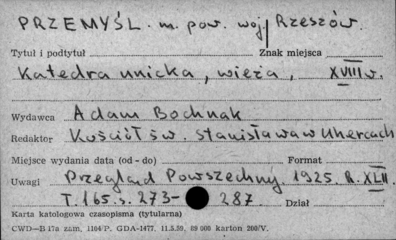 PRZEMYŚL. m. pow. woj. Rzeszów.
Tytuł i podtytuł Znak miejsca
Katedra unicka, wieża, XVIII w.
Wydawca Adam Bochnak
Redaktor Kościół św. Stanisława w Uhercach
Miejsce wydania data (od - do) Format
Uwagi Przegląd Powszechny. 1925. R. XLII.
T. 165. s. 273- 287. Dział
Karta katologowa czasopisma (tytularna)
CWD—B 17a zam. 1104/P. GDA-1477. 11.5.59. 89 000 karton 200/V.